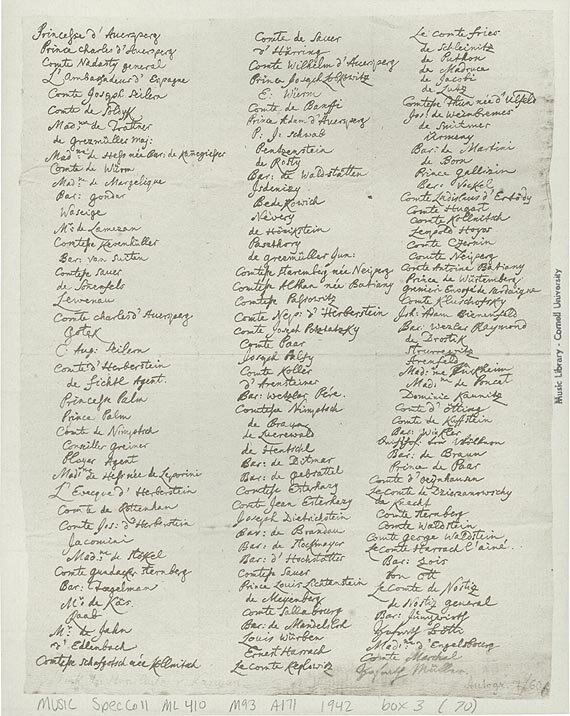 Princesse d'Auersperg
Prince charles d'Auersperg
Comte Nadasty general
L'Ambassadeur d'Espagne
Comte Joseph Seilern
Comte de
Mad:me de Trattner
de grezmüller maj:
Mad:me de Hess née Bar: de
Comte de Würm
Mad:me de Margelique
Bar: gonder
Waseige
Mr: de Lamezan
Comtesse Kevenhüller
Bar: van Suiten
Comtesse Sauer
de Sonnefels
Lewenau
Comte charles d'Auersperg
C: Aug: Seilern
Comte d'Herberstein
de Fichtl Agent.
Princesse Palm
Prince Palm
Comte de Nimptsch
Conseiller greiner
Ployer Agent
Mad:me de Hess née de Leporini
L'Eveque d'Herberstein
Comte de Rottenhan
Comte Jos: d'Herberstein
Jacomini
Mad:me de
Comte gundacker Sternberg
Bar:
Mr: de Käs
Raab
Mr: de Jahn
d'Edlenbach
Comtesse Schafgotsch née Kollnitsch
Comte de Sauer
d'Häring
Comte Wilhelm d'Auersperg
Prince Joseph Lobkowitz
E: Würm
Comte de Banffi
Prince Adam d'Auersperg
P: J: Schwab
Penzenstein
de Rosty
Bar: de Waldstätten
Isdenizy
Bedekovich
Nevery
de Hönikstein
Pasthory
de grezmüller Jun:
Comtesse Staremberg née Neiperg
Comtesse Althan née Batiany
Comtesse Passowitz
Comte Nep: d'Herberstein
Comte Joseph Potztatzky
Comte Paar
Joseph Palfy
Comte Koller
d'Arensteiner
Bar: Wetzlar Pére.
Comtesse Nimptsch
de Braun
de Luerewald
de Hentschl
Bar: de Ditmar
Bar: de Gebsattel
Comtesse Esterhazy
Comte Jean Esterhazy
Joseph Dietrichstein
Bar: de Brandau
Bar: de
Bar: d'Hochstätter
Comtesse Sauer
Prince Louis Lichtenstein
de Meyenberg
Comte Sallabourg
Bar: de Mandelsloh
Louis Würben
Ernest Harrach
Le comte
Le comte fries
de Schleinitz
de Puthon
de Madruce
de Jacobi
de Lutz
Comtesse Thun née d'Ulfeld
Jos: de Weinbrennes
de Suitmer
ürmeny
Bar: de Martini
de Born
Prince gallizin
Bar: Vockel
Comte Ladislaus d'Erdödy
Comte Hugart
Comte Kollnitsch
Leopold Hoyos
Comte Czernin
Comte Neiperg
Comte Antoine Batiany
Prince de Würtemberg
grenieri Envoyé de sardaigne
Comte Kluschofsky
Joh: Adam Bienenfeld
Bar: Wezlar Raymond
de Drostik
Arenfeld
Mad:me
Mad:me de Poncet
Dominic Kaunitz
Comte d'Ötting
Comte de Kuffstein
Bar: Winkler
Bar: de Braun
Prince de Paar
Comte d'oeynhausen
Le Comte de Dzierzanowschy
de Knecht
Comte Sternberg
Comte Waldstein
Comte george Waldstein
Le comte Harrach l'ainé.
Bar: Gois
von Ott
Le Comte de Nostiz
de Nostiz general
Bar: Jüngwirth
Mad:me d'Engelsbourg
Comte Marchal
Müller.
Music Library - Cornell University
MUSIC SpecColl ML 410 M93 A171 1942 box 3 (70)